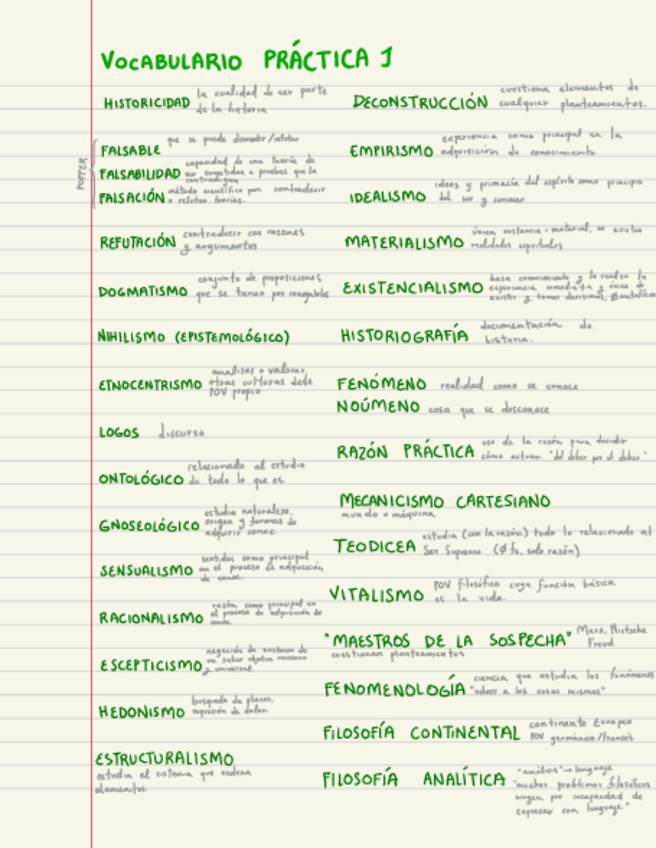 VOCABULARIO PRÁCTICA 1
HISTORICIDAD la cualidad de ser parte
de la historia
POPPER
FALSABLE que se puede desmentir/refutar
FALSABILIDAD capacidad de una teoría de
ser sometida a pruebas que la
contradigan
FALSACIÓN método científico por contradecir
o refutar teorías.
REFUTACIÓN contradecir con razones
y argumentos
DOGMATISMO conjunto de proposiciones
que se tienen por innegables
NIHILISMO (EPISTEMOLÓGICO)
ETNOCENTRISMO analizar o valorar
otras culturas desde
POV propio
LOGOS discurso
ONTOLÓGICO relacionado al estudio
de todo lo que es
GNOSEOLÓGICO estudia naturaleza,
origen y formas de
adquirir conoc.
SENSUALISMO sentidos como principal
en el proceso de adquisición
de conoc.
RACIONALISMO razón como principal en
el proceso de adquisición de
conoc.
ESCEPTICISMO negación de existencia de
un saber objetivo necesario
y universal
HEDONISMO búsqueda de placer,
supresión de dolor.
ESTRUCTURALISMO
estudia el sistema que ordena
elementos
DECONSTRUCCIÓN cuestiona elementos de
cualquier planteamientos.
EMPIRISMO experiencia como principal en la
adquisición de conocimiento
IDEALISMO ideas y primacía del espíritu como principio
del ser y conocer
MATERIALISMO única sustancia: material, no existen
realidades espirituales
EXISTENCIALISMO basa conocimiento y la realidad en la
experiencia inmediata y única de
existir y tomar decisiones,
HISTORIOGRAFÍA documentación de
historia.
FENÓMENO realidad como se conoce
NOÚMENO cosa que se desconoce
RAZÓN PRÁCTICA uso de la razón para decidir
cómo actuar. "del deber por el deber"
MECANICISMO CARTESIANO
mundo o máquina
TEODICEA estudia (con la razón) todo lo relacionado al
Ser Supremo (Ø fe, solo razón)
VITALISMO POV filosófico cuya función básica
es la vida.
"MAESTROS DE LA SOSPECHA" Marx, Nietzsche
Freud
cuestionan planteamientos
FENOMENOLOGÍA ciencia que estudia los fenómenos
"volver a las cosas mismas"
FILOSOFÍA CONTINENTAL continente Europeo
POV germánico/francés
FILOSOFÍA ANALÍTICA "análisis" → lenguaje
"muchos problemas filosóficos
surgen por incapacidad de
expresar con lenguaje"